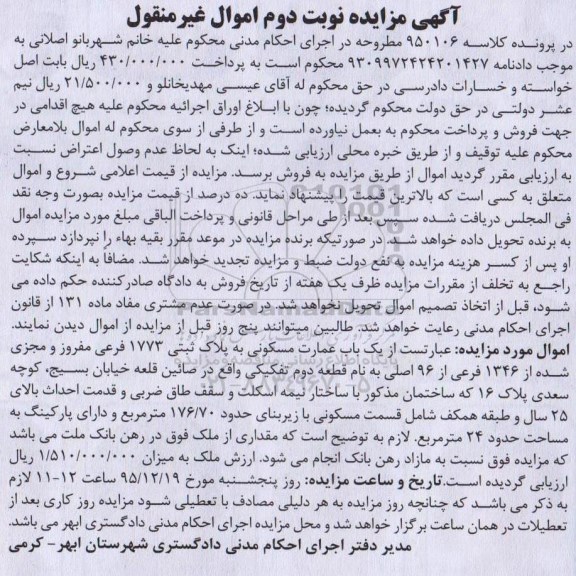 آگهی مزایده نوبت دوم اموال غیرمنقول
در پرونده کلاسه ۹۵۰۱۰۶ مطروحه در اجرای احکام مدنی محکوم علیه خانم شهربانو اصلانی به
موجب دادنامه ۹۳۰۹۹۷۲۴۲۴۲۰۱۴۲۷ محکوم است به پرداخت ۴۳۰/۰۰۰/۰۰۰ ریال بابت اصل
خواسته و خسارات دادرسی در حق محکوم له آقای عیسی مهدیخانلو و ۲۱/۵۰۰/۰۰۰ ریال نیم
عشر دولتی در حق دولت محکوم گردیده؛ چون با ابلاغ اوراق اجرائیه محکوم علیه هیچ اقدامی در
جهت فروش و پرداخت محکوم به بعمل نیاورده است و از طرفی از سوی محکوم له اموال بلامعارض
محکوم علیه توقیف و از طریق خبره محلی ارزیابی شده؛ اینک به لحاظ عدم وصول اعتراض نسبت
به ارزیابی مقرر گردید اموال از طریق مزایده به فروش برسد. مزایده از قیمت اعلامی شروع و اموال
متعلق به کسی است که بالاترین قیمت را پیشنهاد نماید. ده درصد از قیمت مزایده بصورت وجه نقد
فی المجلس دریافت شده سپس بعد از طی مراحل قانونی و پرداخت الباقی مبلغ مورد مزایده اموال
به برنده تحویل داده خواهد شد. در صورتیکه برنده مزایده در موعد مقرر بقیه بهاء را نپردازد سپرده
او پس از کسر هزینه مزایده به نفع دولت ضبط و مزایده تجدید خواهد شد. مضافاً به اینکه شکایت
راجع به تخلف از مقررات مزایده ظرف یک هفته از تاریخ فروش به دادگاه صادرکننده حکم داده می
شود، قبل از اتخاذ تصمیم اموال تحویل نخواهد شد. در صورت عدم مشتری مفاد ماده ۱۳۱ از قانون
اجرای احکام مدنی رعایت خواهد شد. طالبین میتوانند پنج روز قبل از مزایده از اموال دیدن نمایند.
اموال مورد مزایده: عبارتست از یک باب عمارت مسکونی به پلاک ثبتی ۱۷۷۳ فرعی مفروز و مجزی
شده از ۱۳۴۶ فرعی از ۹۶ اصلی به نام قطعه دوم تفکیکی واقع در صائین قلعه خیابان بسیج، کوچه
سعدی پلاک ۱۶ که ساختمان مذکور با ساختار نیمه اسکلت و سقف طاق ضربی و قدمت احداث بالای
۲۵ سال و طبقه همکف شامل قسمت مسکونی با زیربنای حدود ۱۷۶/۷۰ مترمربع و دارای پارکینگ به
مساحت حدود ۲۴ مترمربع. لازم به توضیح است که مقداری از ملک فوق در رهن بانک ملت می باشد
که مزایده فوق نسبت به مازاد رهن بانک انجام می شود. ارزش ملک به میزان ۱/۵۱۰/۰۰۰/۰۰۰ ریال
ارزیابی گردیده است.تاریخ و ساعت مزایده: روز پنجشنبه مورخ ۹۵/۱۲/۱۹ ساعت ۱۲-۱۱ لازم
به ذکر می باشد که چنانچه روز مزایده به هر دلیلی مصادف با تعطیلی شود مزایده روز کاری بعد از
تعطیلات در همان ساعت برگزار خواهد شد و محل مزایده اجرای احکام مدنی دادگستری ابهر می باشد.
مدیر دفتر اجرای احکام مدنی دادگستری شهرستان ابهر- کرمی